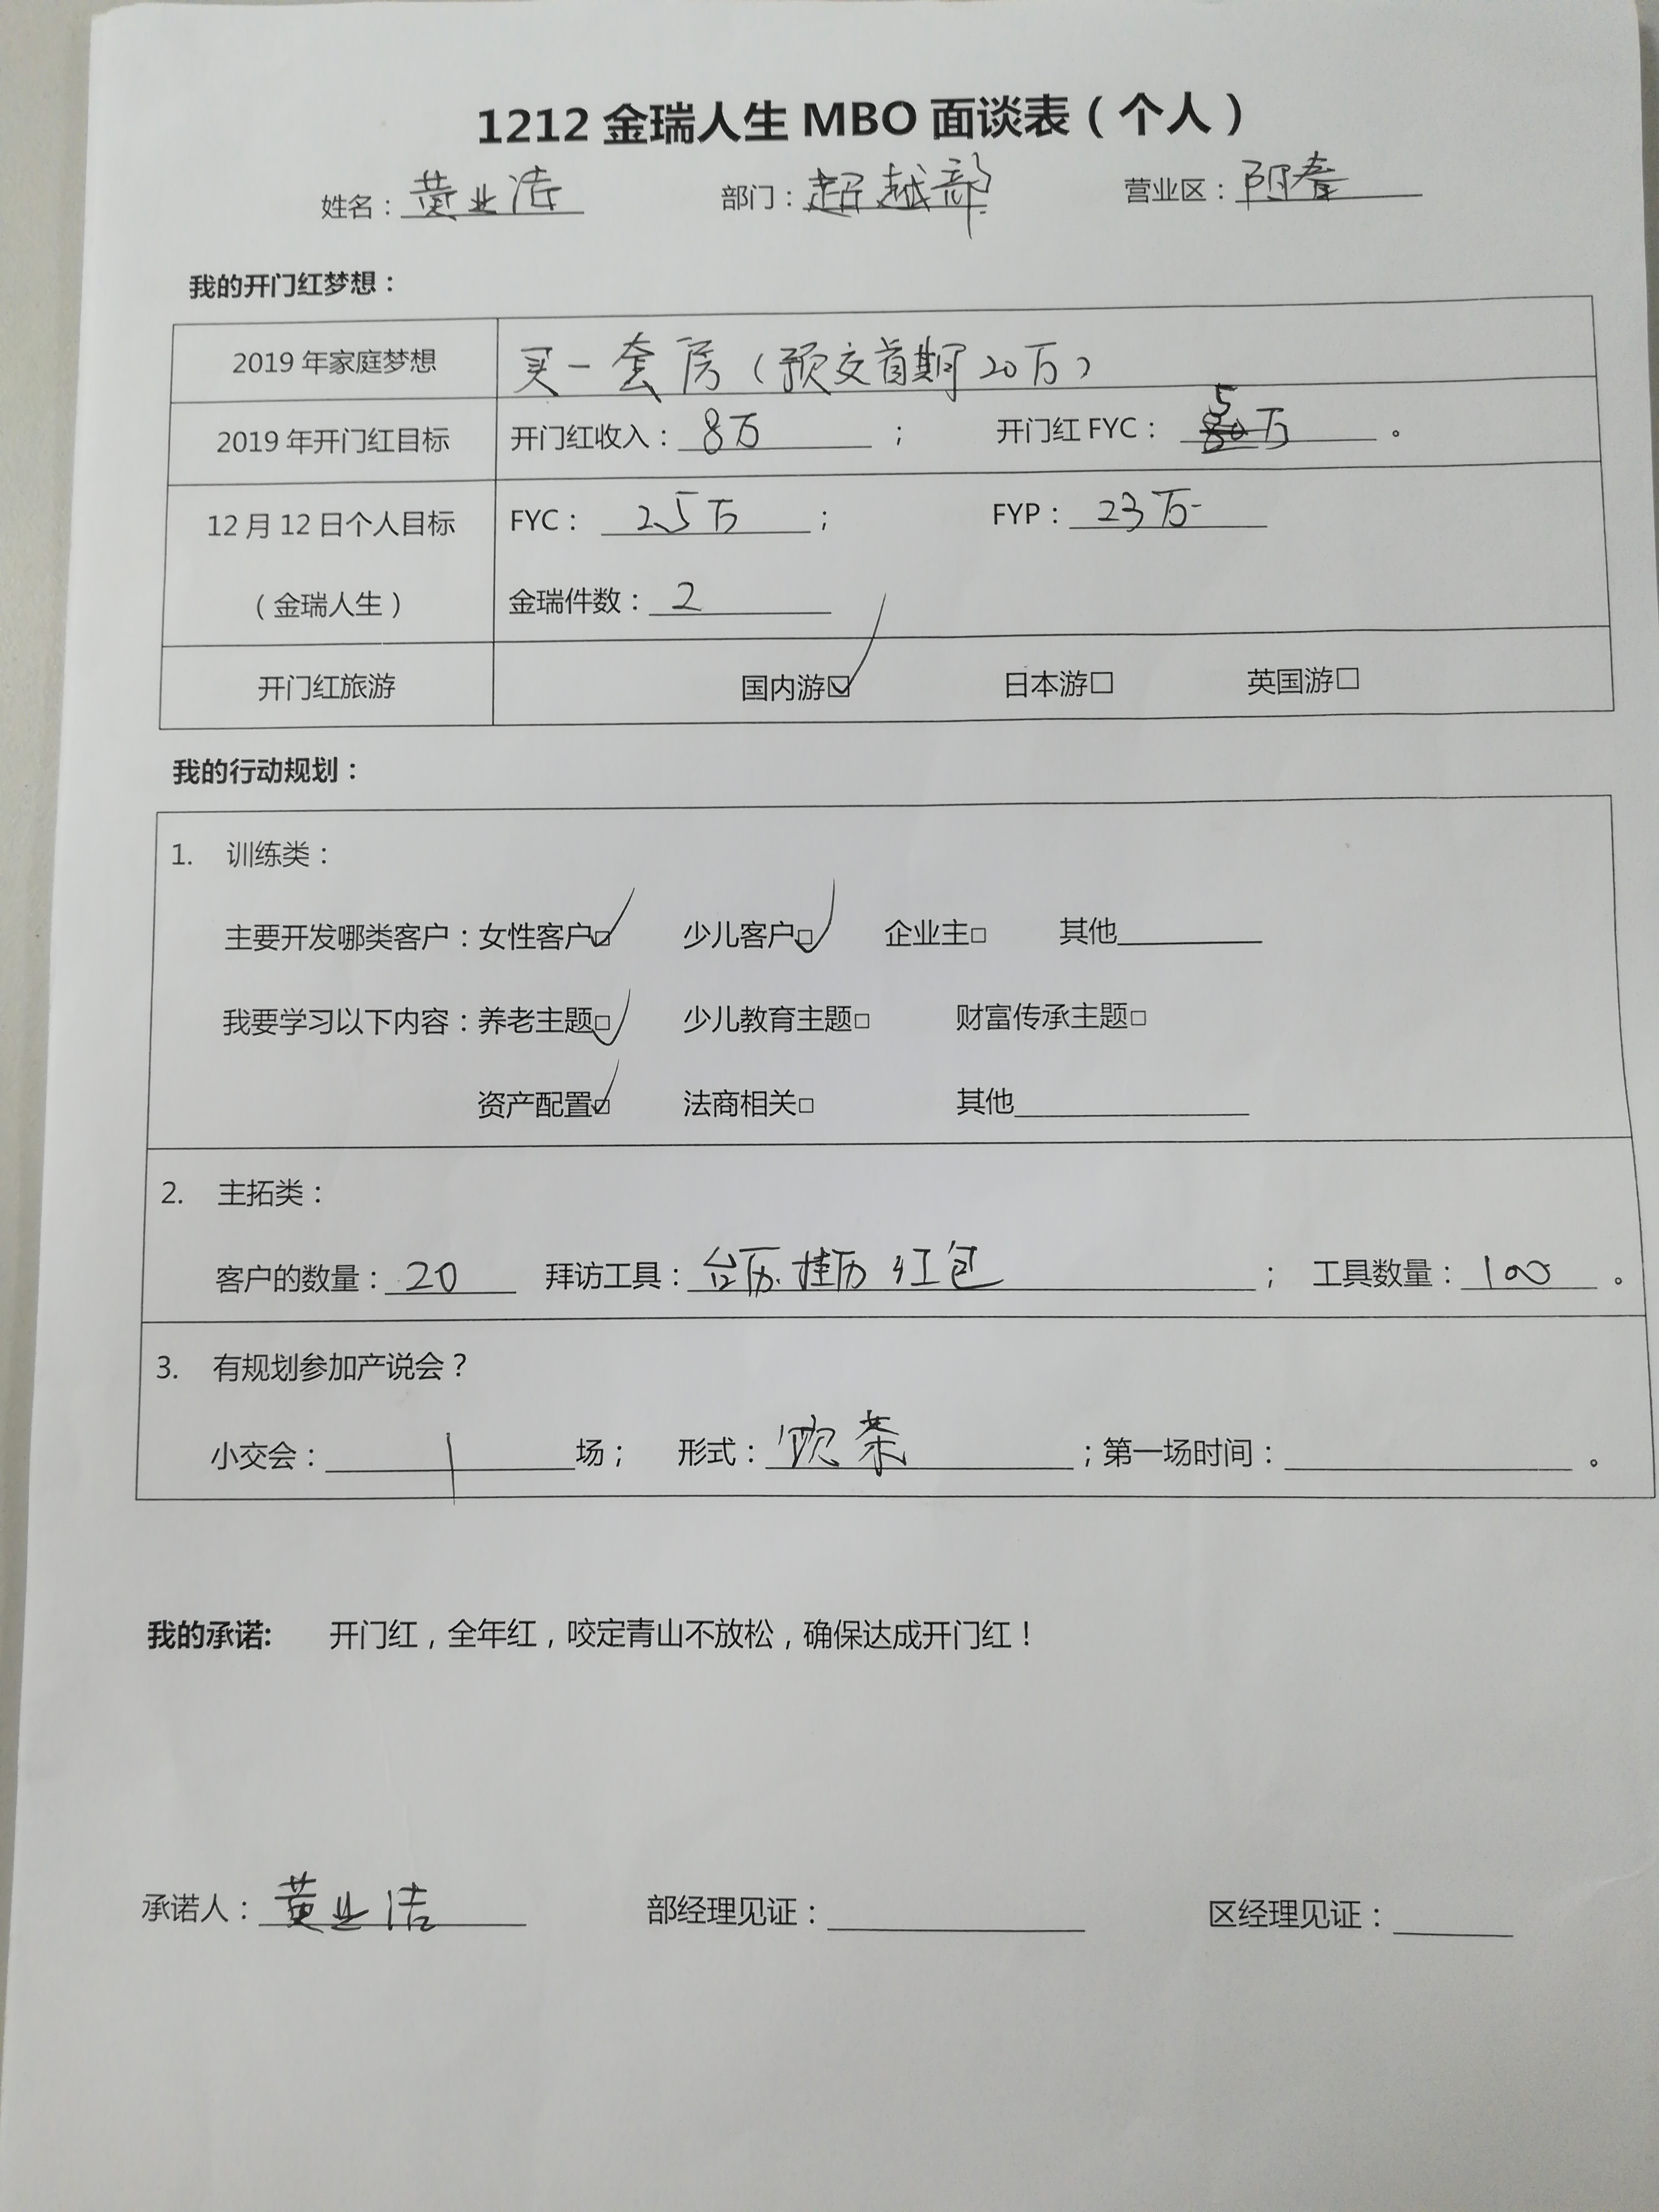 1212 金瑞人生 MBO 面谈表（个人）
姓名：黄业洁 部门：超越部 营业区：阳春
我的开门红梦想：
2019 年家庭梦想 买一套房（预交首期20万）
2019 年开门红目标 开门红收入：8万； 开门红 FYC：5万。
12 月 12 日个人目标 FYC：2.5万； FYP：23万
（金瑞人生） 金瑞件数：2
开门红旅游 国内游☑ 日本游□ 英国游□
我的行动规划：
1. 训练类：
主要开发哪类客户：女性客户☑ 少儿客户☑ 企业主□ 其他
我要学习以下内容：养老主题☑ 少儿教育主题□ 财富传承主题□
资产配置☑ 法商相关□ 其他
2. 主拓类：
客户的数量：20 拜访工具：台历、挂历 红包； 工具数量：100。
3. 有规划参加产说会？
小交会：1场； 形式：饮茶；第一场时间：。
我的承诺: 开门红，全年红，咬定青山不放松，确保达成开门红！
承诺人：黄业洁 部经理见证： 区经理见证：